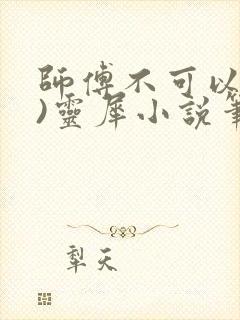 師傅不可以
)靈犀小說
犁天